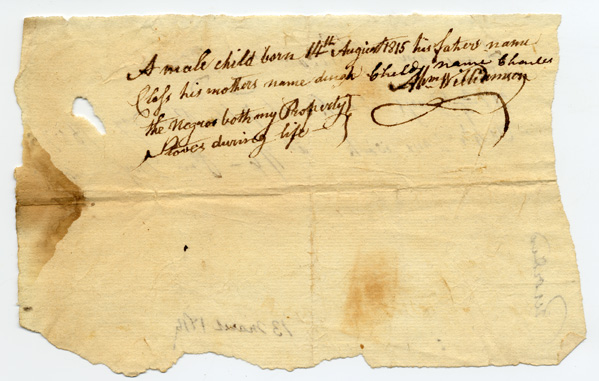 A male child born 14th August 1815 his fathers name
Cless his mothers name dinah Childs name Charles
the Negros both my Property
Slaves during life
Abm Williamson